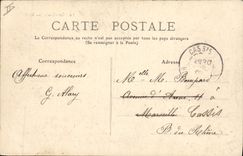 CARTE POSTALE
La Correspondance au recto n'est pas acceptée par tous les pays étrangers
(Se renseigner à la Poste)
Correspondance
Adresse
CASSIS
Affectueux souvenirs
G. Alary
M elle M. Bompard
Marseille Cassis
B. du Rhône